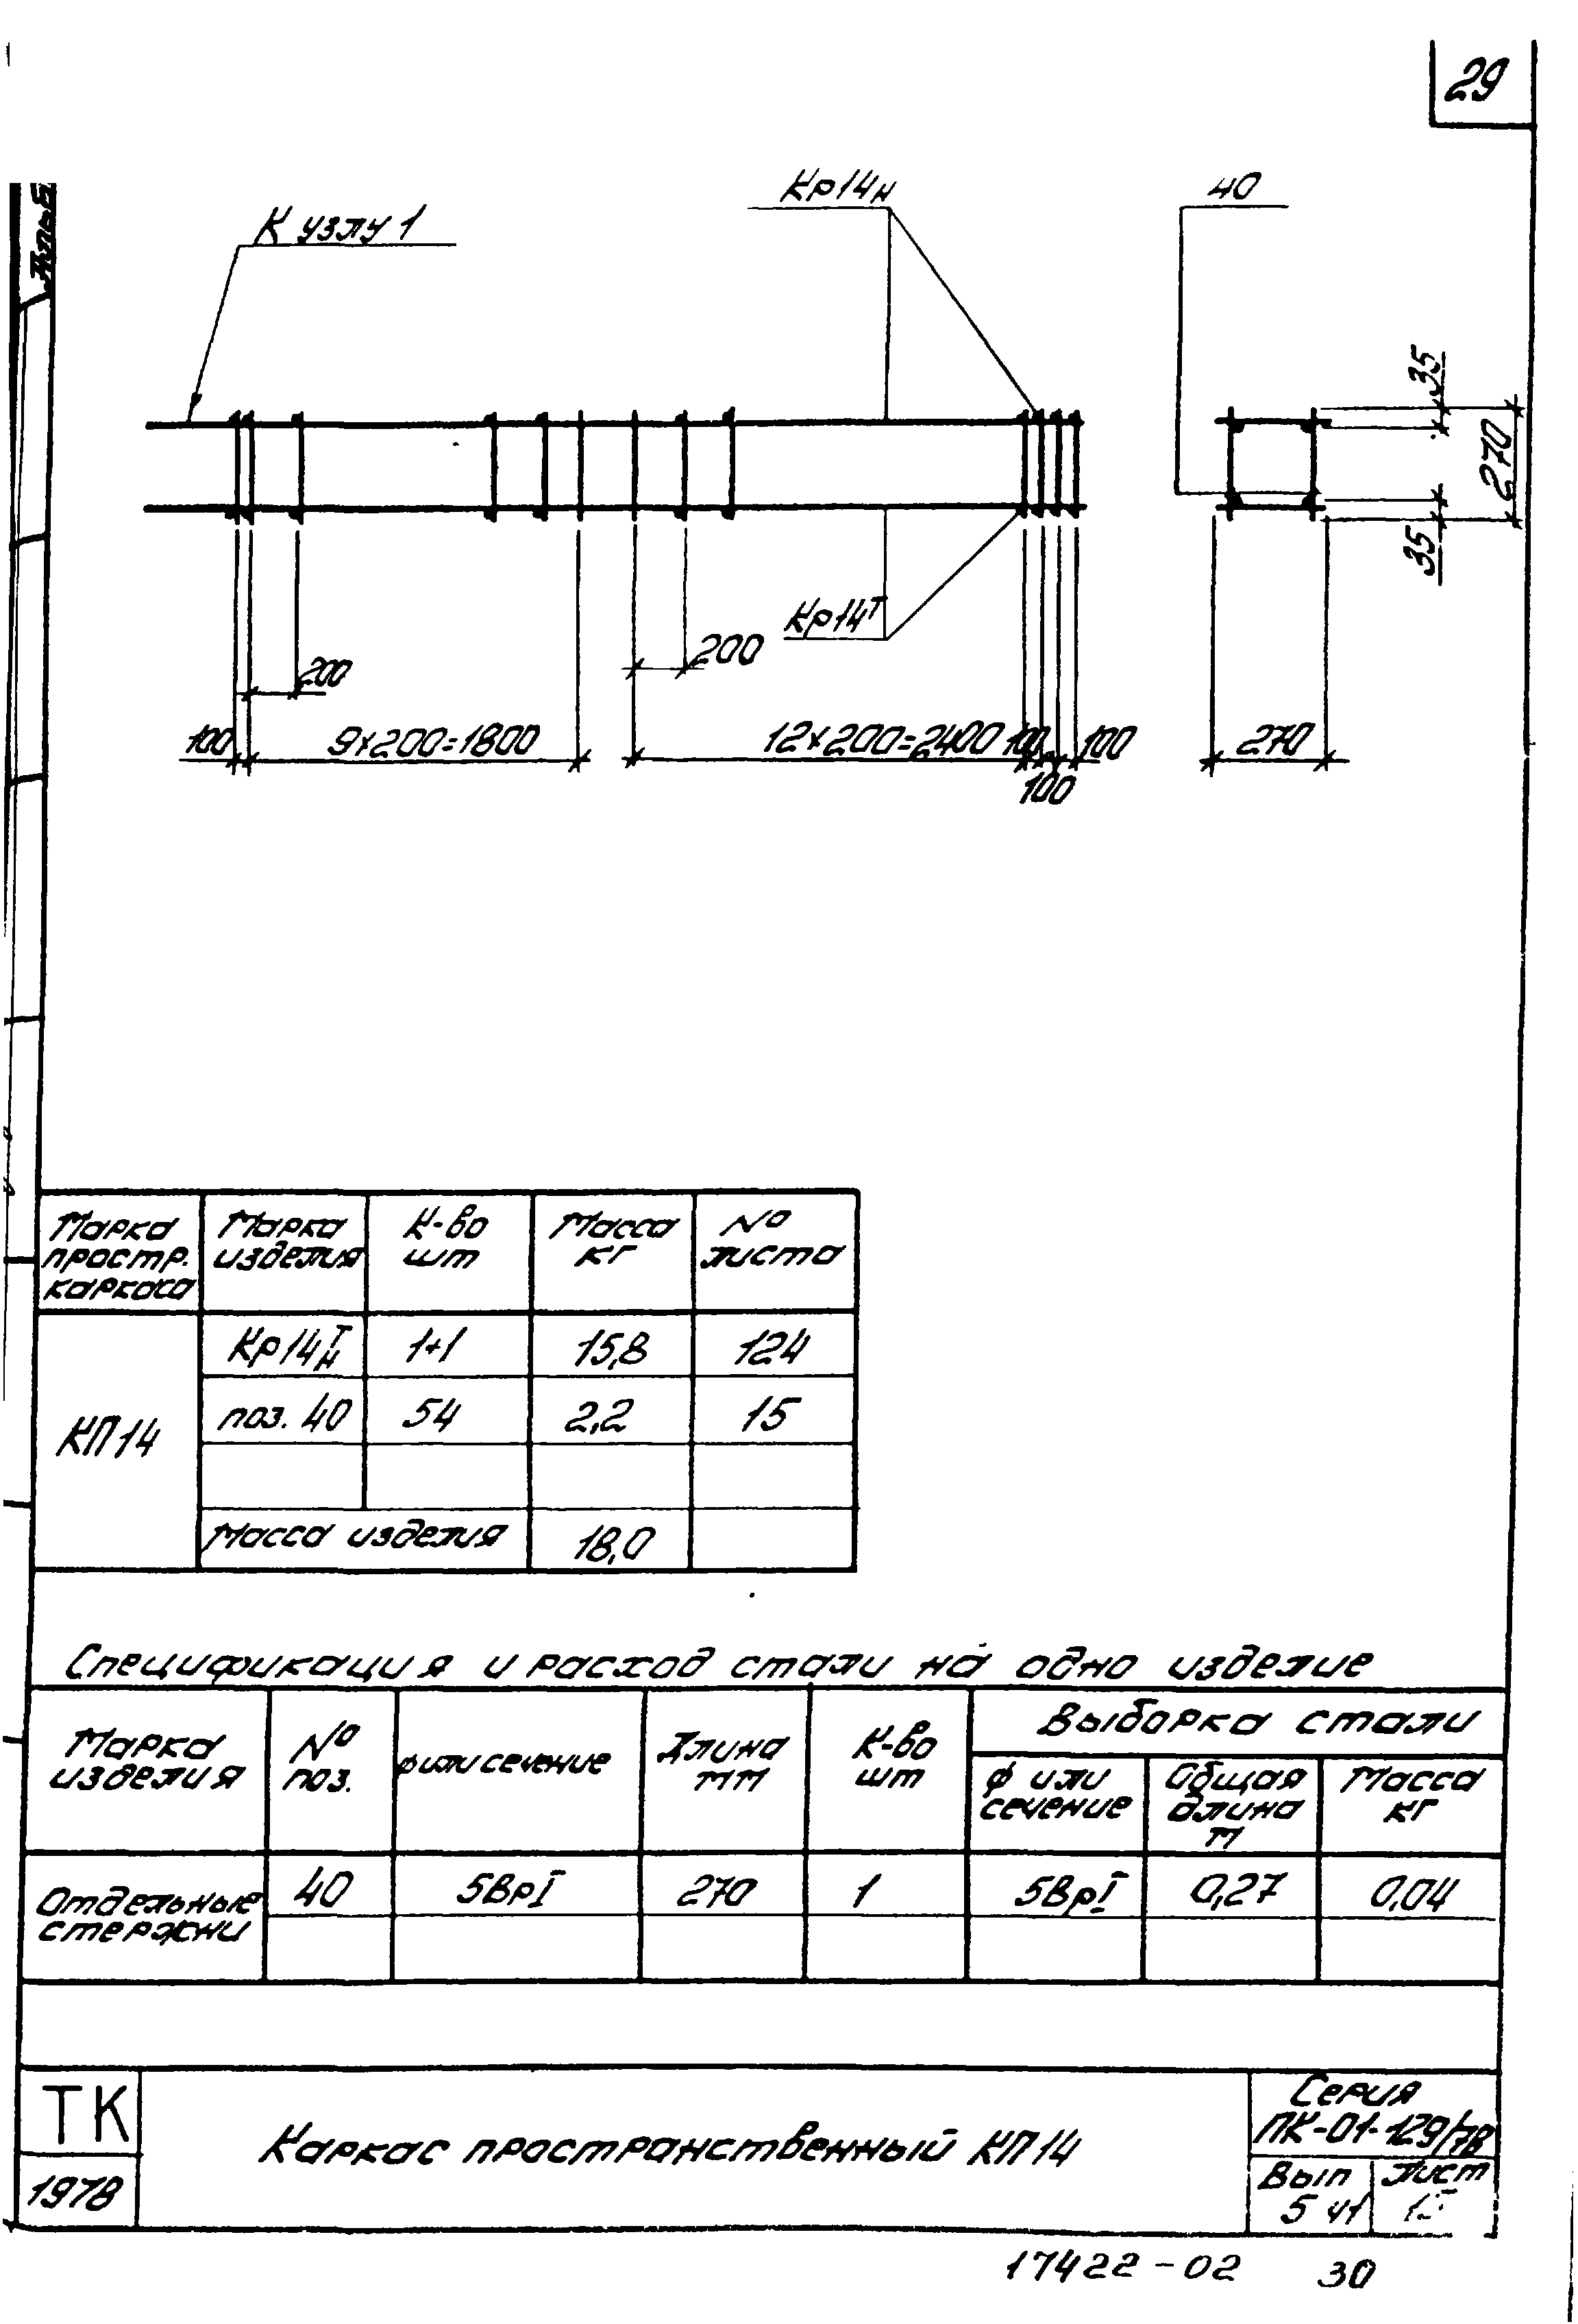 29
К узлу 1
Кр14н
40
35
270
35
Кр14т
200
200
100
9×200=1800
12×200=2400
100
100
100
270
Марка простр. каркаса
Марка изделия
К-во шт
Масса кг
№ листа
КП14
Кр14 т н
1+1
15,8
124
поз. 40
54
2,2
15
Масса изделия
18,0
Спецификация и расход стали на одно изделие
Марка изделия
№ поз.
ф или сечение
Длина мм
К-во шт
Выборка стали
ф или сечение
Общая длина м
Масса кг
Отдельные стержни
40
5ВрI
270
1
5ВрI
0,27
0,04
ТК
1978
Каркас пространственный КП14
Серия
ПК-01-129/78
Вып
5 ч1
Лист
17422-02
30